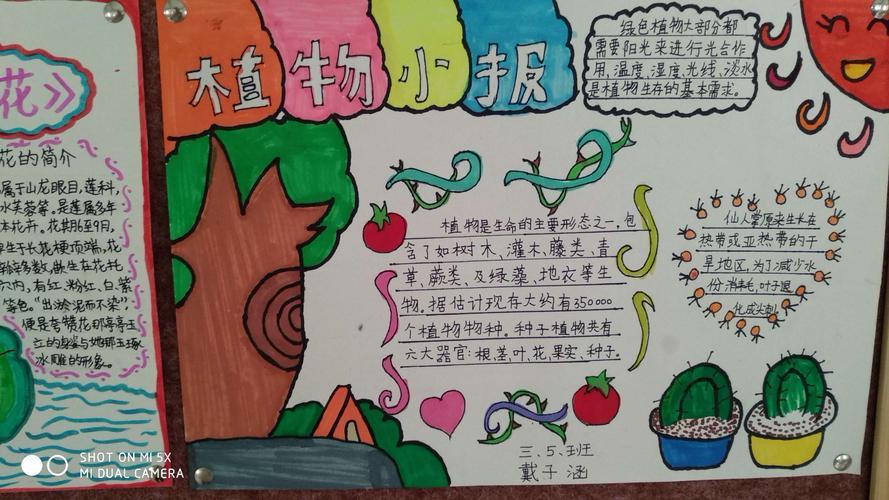 花》
花的简介
属于山龙眼目,莲科,
水芙蓉等。是莲属多年
本花卉。花期6至9月,
单生于长花梗顶端,花
嵌生在花托
穴内,有红、粉红、白、紫
等色。"出淤泥而不染",
便是赞荷花那亭亭玉
立的身姿与她那玉琢
冰雕的形象。
植物小报
绿色植物大部分都
需要阳光来进行光合作
用,温度、湿度、光线、淡水
是植物生存的基本需求。
植物是生命的主要形态之一,包
含了如树木、灌木、藤类、青
草、蕨类、及绿藻、地衣等生
物。据估计现存大约有350000
个植物物种。种子植物共有
六大器官:根、茎、叶、花、果实、种子。
仙人掌原来生长在
热带或亚热带的干
旱地区,为了减少水
份消耗,叶子退
化成尖刺
三.5.班
戴子涵
SHOT ON MI 5X
MI DUAL CAMERA